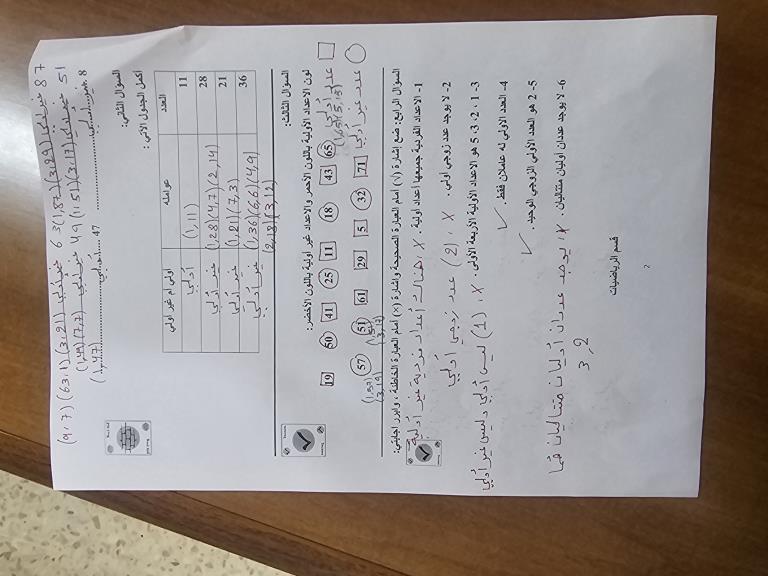 87 غير أولي (3,29)(1,87) 63 غير أولي (3,21)(63,1)(9,7)
51 غير أولي (3,17)(1,51) 49 غير أولي (7,7)(1,49)
8 ........ 47 ....أولي.... (1,47)
السؤال الثاني:
اكمل الجدول الآتي :
العدد عوامله أولي ام غير اولي
11 (1,11) أولي
28 (1,28)(4,7)(2,14) غير أولي
21 (1,21)(7,3) غير أولي
36 (1,36)(6,6)(4,9)(2,18)(3,12) غير أولي
السؤال الثالث:
لون الاعداد الأولية باللون الأحمر والاعداد غير اولية باللون الأخضر:
عدد أولي
عدد غير أولي
19 50 41 25 11 18 43 65
(5,13)
57 51 61 29 5 32 71
(1,57) (3,19) (1,51) (3,17)
السؤال الرابع: ضع إشارة (√) امام العبارة الصحيحة وإشارة (×) امام العبارة الخاطئة ، وابرر اجابتي:
1- الاعداد الفردية جميعها أعداد اولية. X ، هناك أعداد فردية غير أولية
2- لا يوجد عدد زوجي اولي. X (2) عدد زوجي أولي
3- 1 ، 2 ، 3 ، 5 هو الاعداد الأولية الأربعة الأولى. X ، (1) ليس أولي وليس غير أولي
4- العدد الاولي له عاملان فقط. ✓
5- 2 هو العدد الأولي الزوجي الوحيد. ✓
6- لا يوجد عددان اوليان متتاليان. X ، يوجد عددان أوليان متتاليان هما
3 , 2
قسم الرياضيات
2